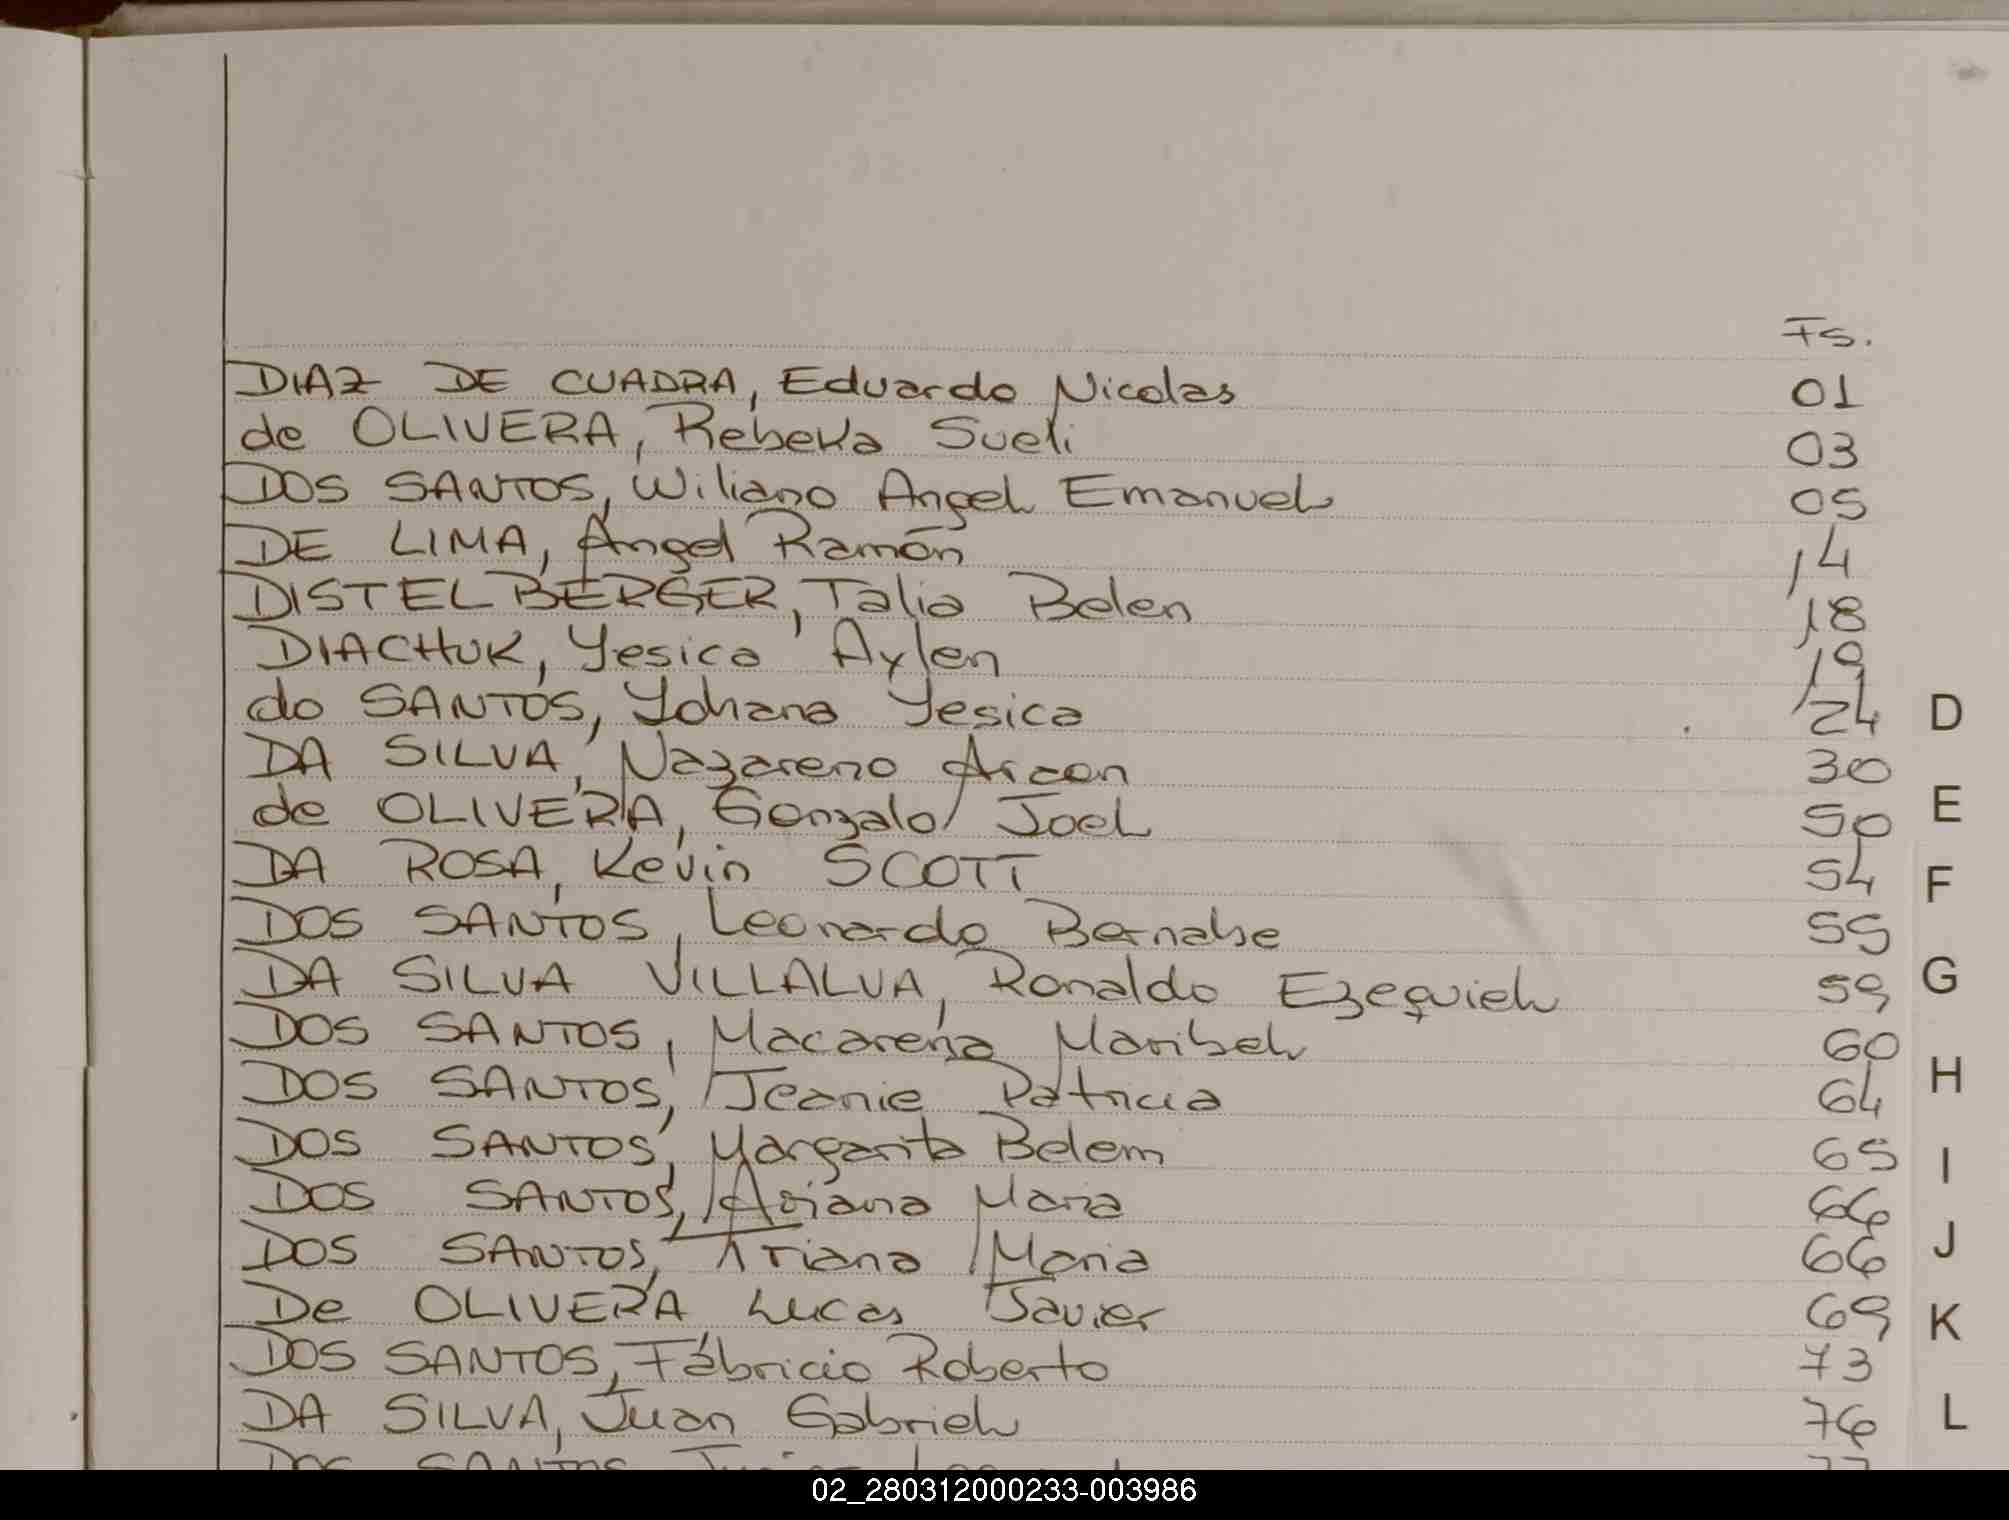 Fs.
DIAZ DE CUADRA, Eduardo Nicolas 01
de OLIVERA, Rebeka Sueli 03
DOS SANTOS, Wiliano Angel Emanuel 05
DE LIMA, Angel Ramón 14
DISTELBERGER, Talia Belen 18
DIACHUK, Yesica Aylen 19
do SANTOS, Yohana Yesica 24
D
DA SILVA, Nazareno Araon 30
de OLIVERA, Gonzalo Joel 50
E
DA ROSA, Kevin SCOTT 54
F
DOS SANTOS, Leonardo Bernabe 55
DA SILVA VILLALVA, Ronaldo Ezequiel 59
G
DOS SANTOS, Macarena Maribel 60
DOS SANTOS, Jeanie Patricia 64
H
DOS SANTOS, Margarita Belem 65
I
DOS SANTOS, Ariana Maria 66
DOS SANTOS, Ariana Maria 66
J
De OLIVERA Lucas Javier 69
K
DOS SANTOS, Fabricio Roberto 73
DA SILVA, Juan Gabriel 76
L
DOS SANTOS 77
02_280312000233-003986